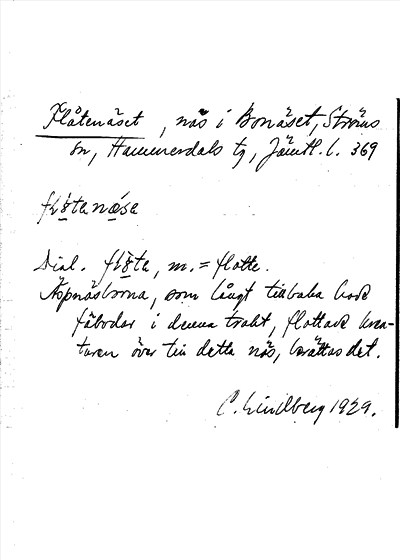 Flåtenäset, näs i Bonäset, Ströms
sn, Hammerdals tg, Jämtl. l. 369
flǫ̈tanǽsa
Dial. flǫ̈ta, m. = flotte.
Äspnäsborna, som långt tillbaka hade
fäbodar i denna trakt, flottade krea-
turen över till detta näs, berättas det.
C. Lindberg 1929.